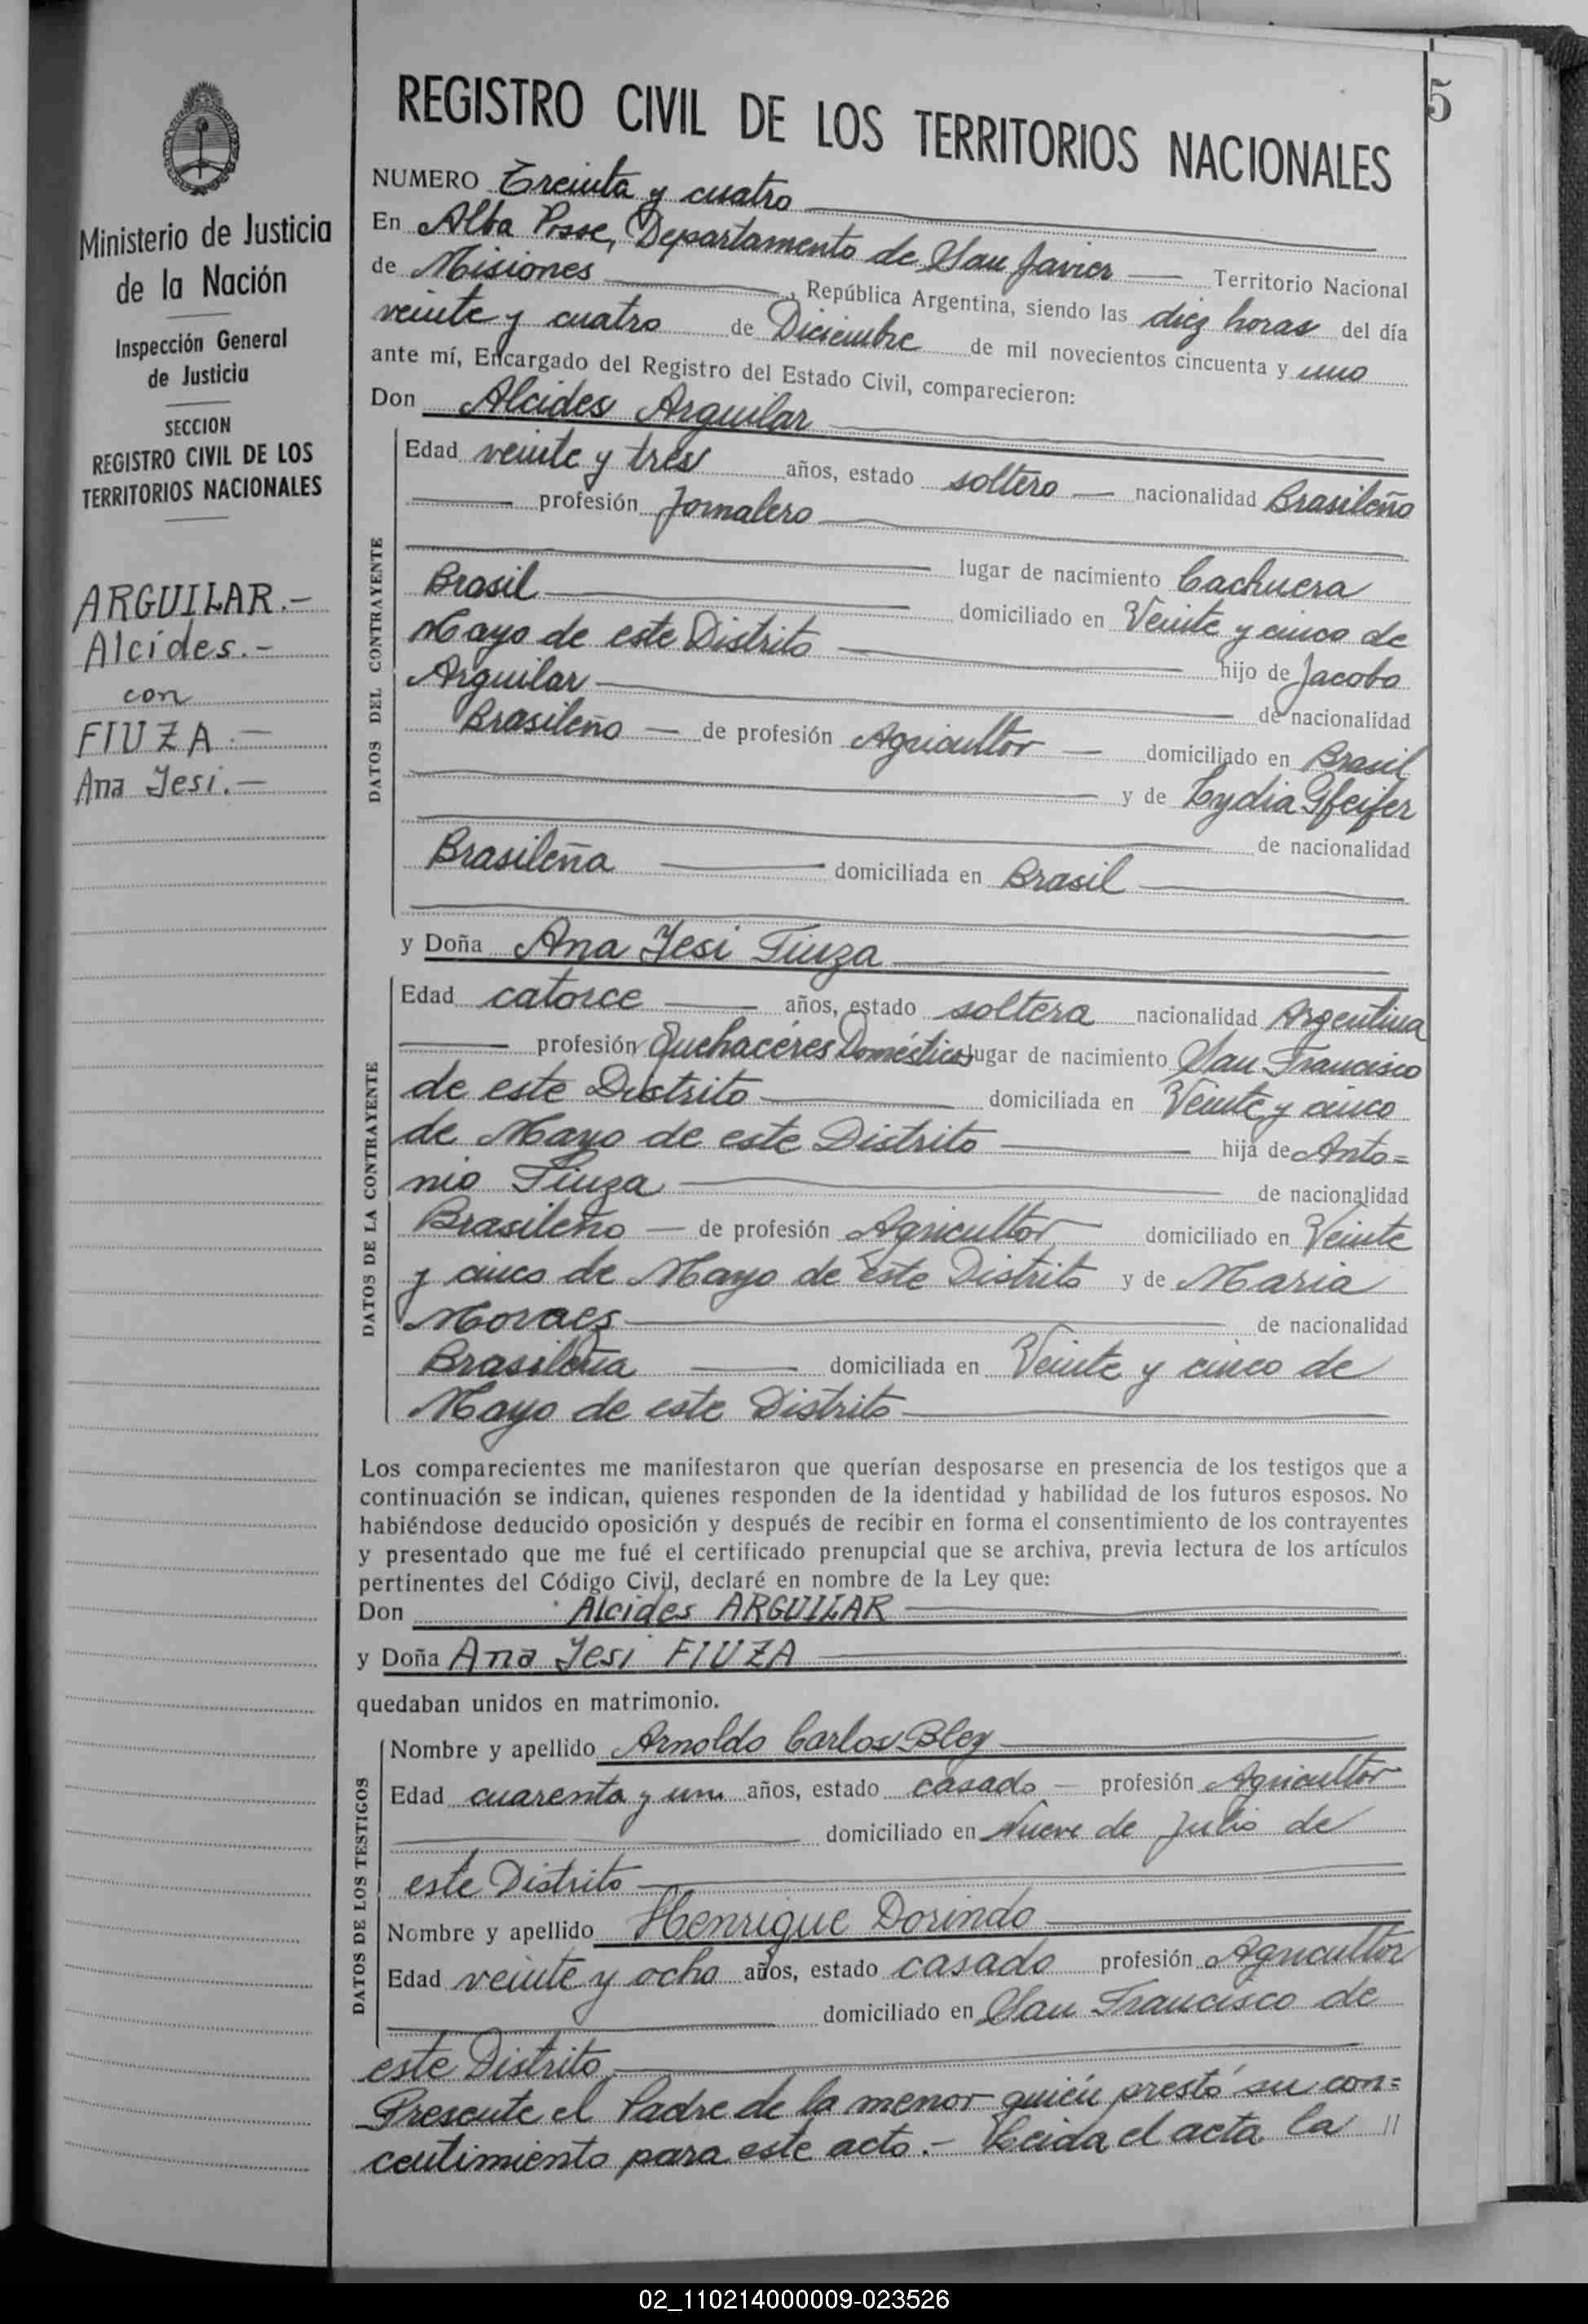 5
REGISTRO CIVIL DE LOS TERRITORIOS NACIONALES
Ministerio de Justicia
de la Nación
Inspección General
de Justicia
SECCION
REGISTRO CIVIL DE LOS
TERRITORIOS NACIONALES
ARGUILAR.-
Alcides.-
con
FIUZA.-
Ana Yesi.-
NUMERO Treinta y cuatro
En Alba Posse, Departamento de San Javier Territorio Nacional
de Misiones, República Argentina, siendo las diez horas del día
veinte y cuatro de Diciembre de mil novecientos cincuenta y uno
ante mí, Encargado del Registro del Estado Civil, comparecieron:
Don Alcides Arguilar
DATOS DEL CONTRAYENTE
Edad veinte y tres años, estado soltero nacionalidad Brasileño
profesión Jornalero
lugar de nacimiento Cachuera
Brasil domiciliado en Veinte y cinco de
Mayo de este Distrito hijo de Jacobo
Arguilar de nacionalidad
Brasileño de profesión Agricultor domiciliado en Brasil
y de Lydia Pfeifer
de nacionalidad
Brasileña domiciliada en Brasil
y Doña Ana Yesi Fiuza
DATOS DE LA CONTRAYENTE
Edad catorce años, estado soltera nacionalidad Argentina
profesión Quehacéres Domésticos lugar de nacimiento San Francisco
de este Distrito domiciliada en Veinte y cinco
de Mayo de este Distrito hija de Anto=
nio Fiuza de nacionalidad
Brasileño de profesión Agricultor domiciliado en Veinte
y cinco de Mayo de este Distrito y de Maria
Moraes de nacionalidad
Brasileña domiciliada en Veinte y cinco de
Mayo de este Distrito
Los comparecientes me manifestaron que querían desposarse en presencia de los testigos que a
continuación se indican, quienes responden de la identidad y habilidad de los futuros esposos. No
habiéndose deducido oposición y después de recibir en forma el consentimiento de los contrayentes
y presentado que me fué el certificado prenupcial que se archiva, previa lectura de los artículos
pertinentes del Código Civil, declaré en nombre de la Ley que:
Don Alcides ARGUILAR
y Doña Ana Yesi FIUZA
quedaban unidos en matrimonio.
DATOS DE LOS TESTIGOS
Nombre y apellido Arnoldo Carlos Bley
Edad cuarenta y un años, estado casado profesión Agricultor
domiciliado en Nueve de Julio de
este Distrito
Nombre y apellido Henrique Dorindo
Edad veinte y ocho años, estado casado profesión Agricultor
domiciliado en San Francisco de
este Distrito
Presente el Padre de la menor quién prestó su con=
centimiento para este acto.- Leida el acta la //
02_110214000009-023526